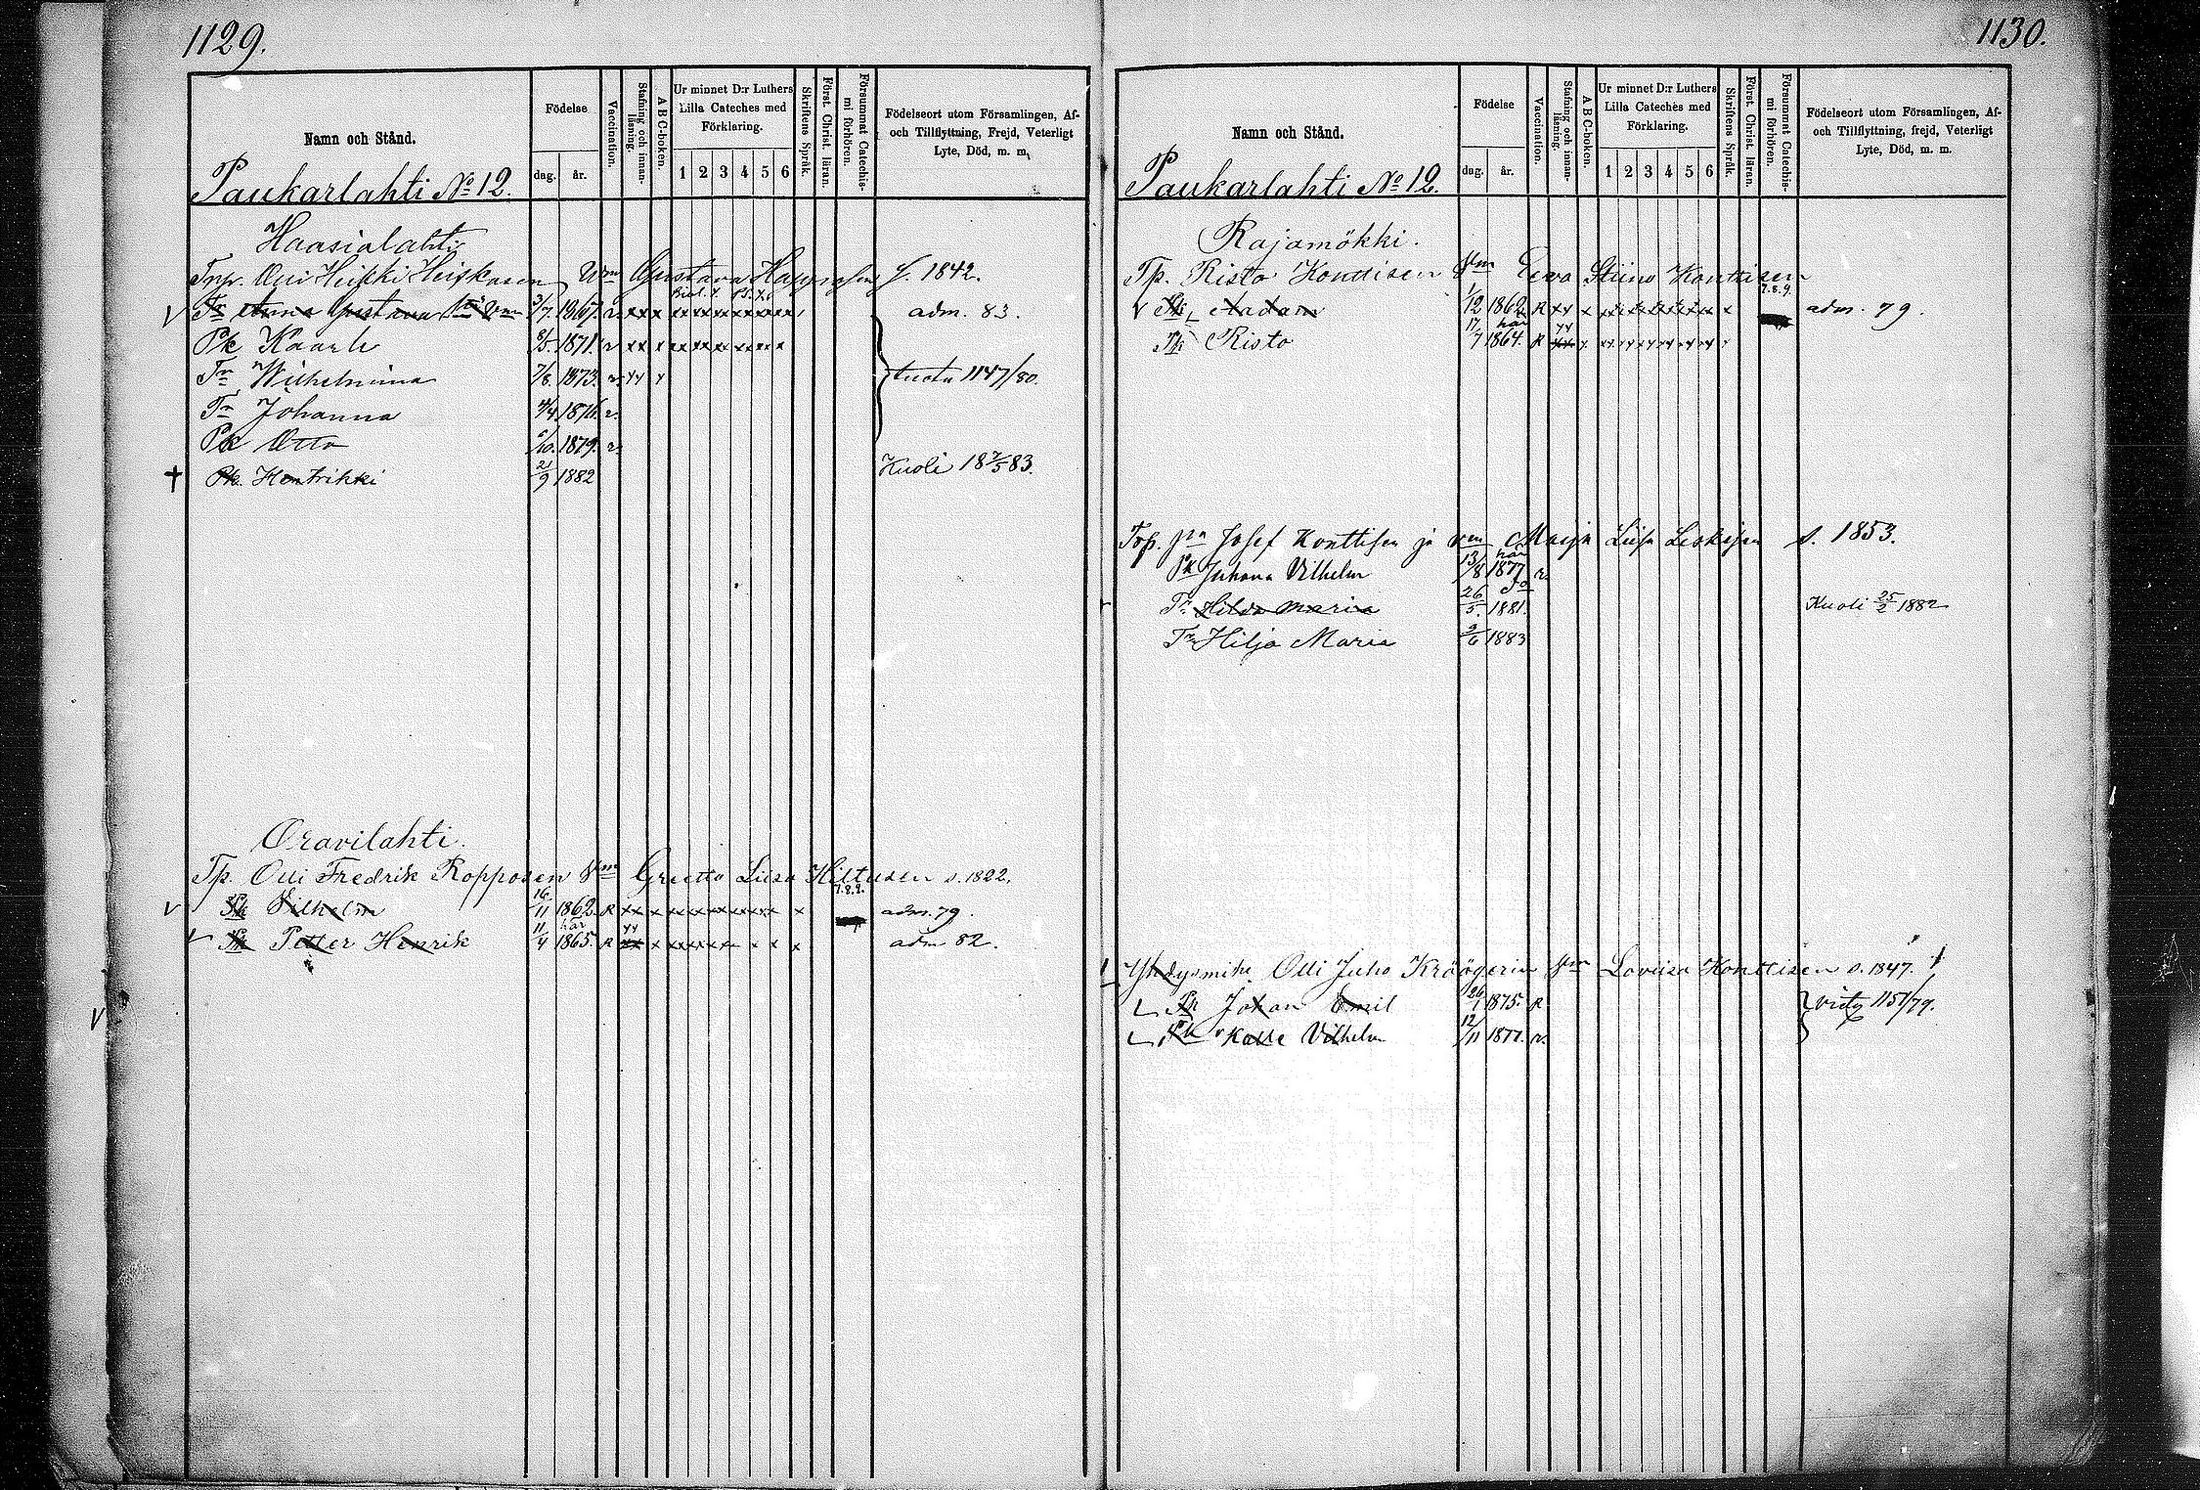 1129.
Namn och Stånd.
Födelse
dag.
år.
Vaccination.
Stafning och innan-läsning.
A B C-boken.
Ur minnet D:r Luthers
Lilla Cateches med
Förklaring.
1 2 3 4 5 6
Skriftens Språk.
Först. Christ. läran.
Försummat Catechis-mi förhören.
Födelseort utom Församlingen, Af-
och Tillflyttning, Frejd, Veterligt
Lyte, Död, m. m.
Paukarlahti No 12.
Haasialahti
Olli Heikki Heiskasen Wm Gustava Happosen f. 1842.
Tr Anna Gustava 3/7 1867. r. xx x xx xx xx xx xx xx adm. 83.
Pk Kaarle 1871. r xx x xx xx xx xx x x
Tr Wilhelmiina 7/8. 1873. r. xx x 1147/80.
Tr Johanna 4/4 1876. r.
Pk Otto /10. 1879. r.
Pk. Hentrikki 21/9 1882 Kuoli 18 7/5 83.
Oravilahti.
Tp. Olli Fredrik Ropposen Vm Greetta Liisa Hiltusen s. 1822.
7.8.9.
Pk Vilhelm 16/11 1862. R xx x xx xx xx xx xx xx x adm. 79.
här
Pk Petter Henrik 11/4 1865. R xx x xx xx xx x x x adm 82.
1130.
Namn och Stånd.
Födelse
dag.
år.
Vaccination.
Stafning och innan-läsning.
A B C-boken.
Ur minnet D:r Luthers
Lilla Cateches med
Förklaring.
1 2 3 4 5 6
Skriftens Språk.
Först. Christ. läran.
Försummat Catechis-mi förhören.
Födelseort utom Församlingen, Af-
och Tillflyttning, frejd, Veterligt
Lyte, Död, m. m.
Paukarlahti No 12.
Rajamökki.
Tp. Risto Konttisen Vm Eeva Stiina Konttisen
7.8.9.
Pk Aadam 1/12 1862 R xx x xx xx xx xx xx xx x adm. 79.
här
Pk Risto 17/7 1864. R xx x xx xx xx xx xx xx x
Trp. pn Josef Konttisen ja vm Maija Liisa Leskisen s. 1853.
här
Pk Juhana Vilhelm 13/8 1877 r.
Tr Hilda Maria 26/5 1881. Kuoli 25/2 1882
Tr Hilja Maria 2/6 1883
Olli Juho Kröögerin Vm Loviisa Konttisen s. 1847.
Pk Johan Emil 26/1 1875. R 1151/79.
Pk Kalle Vilhelm 12/11 1877. r.